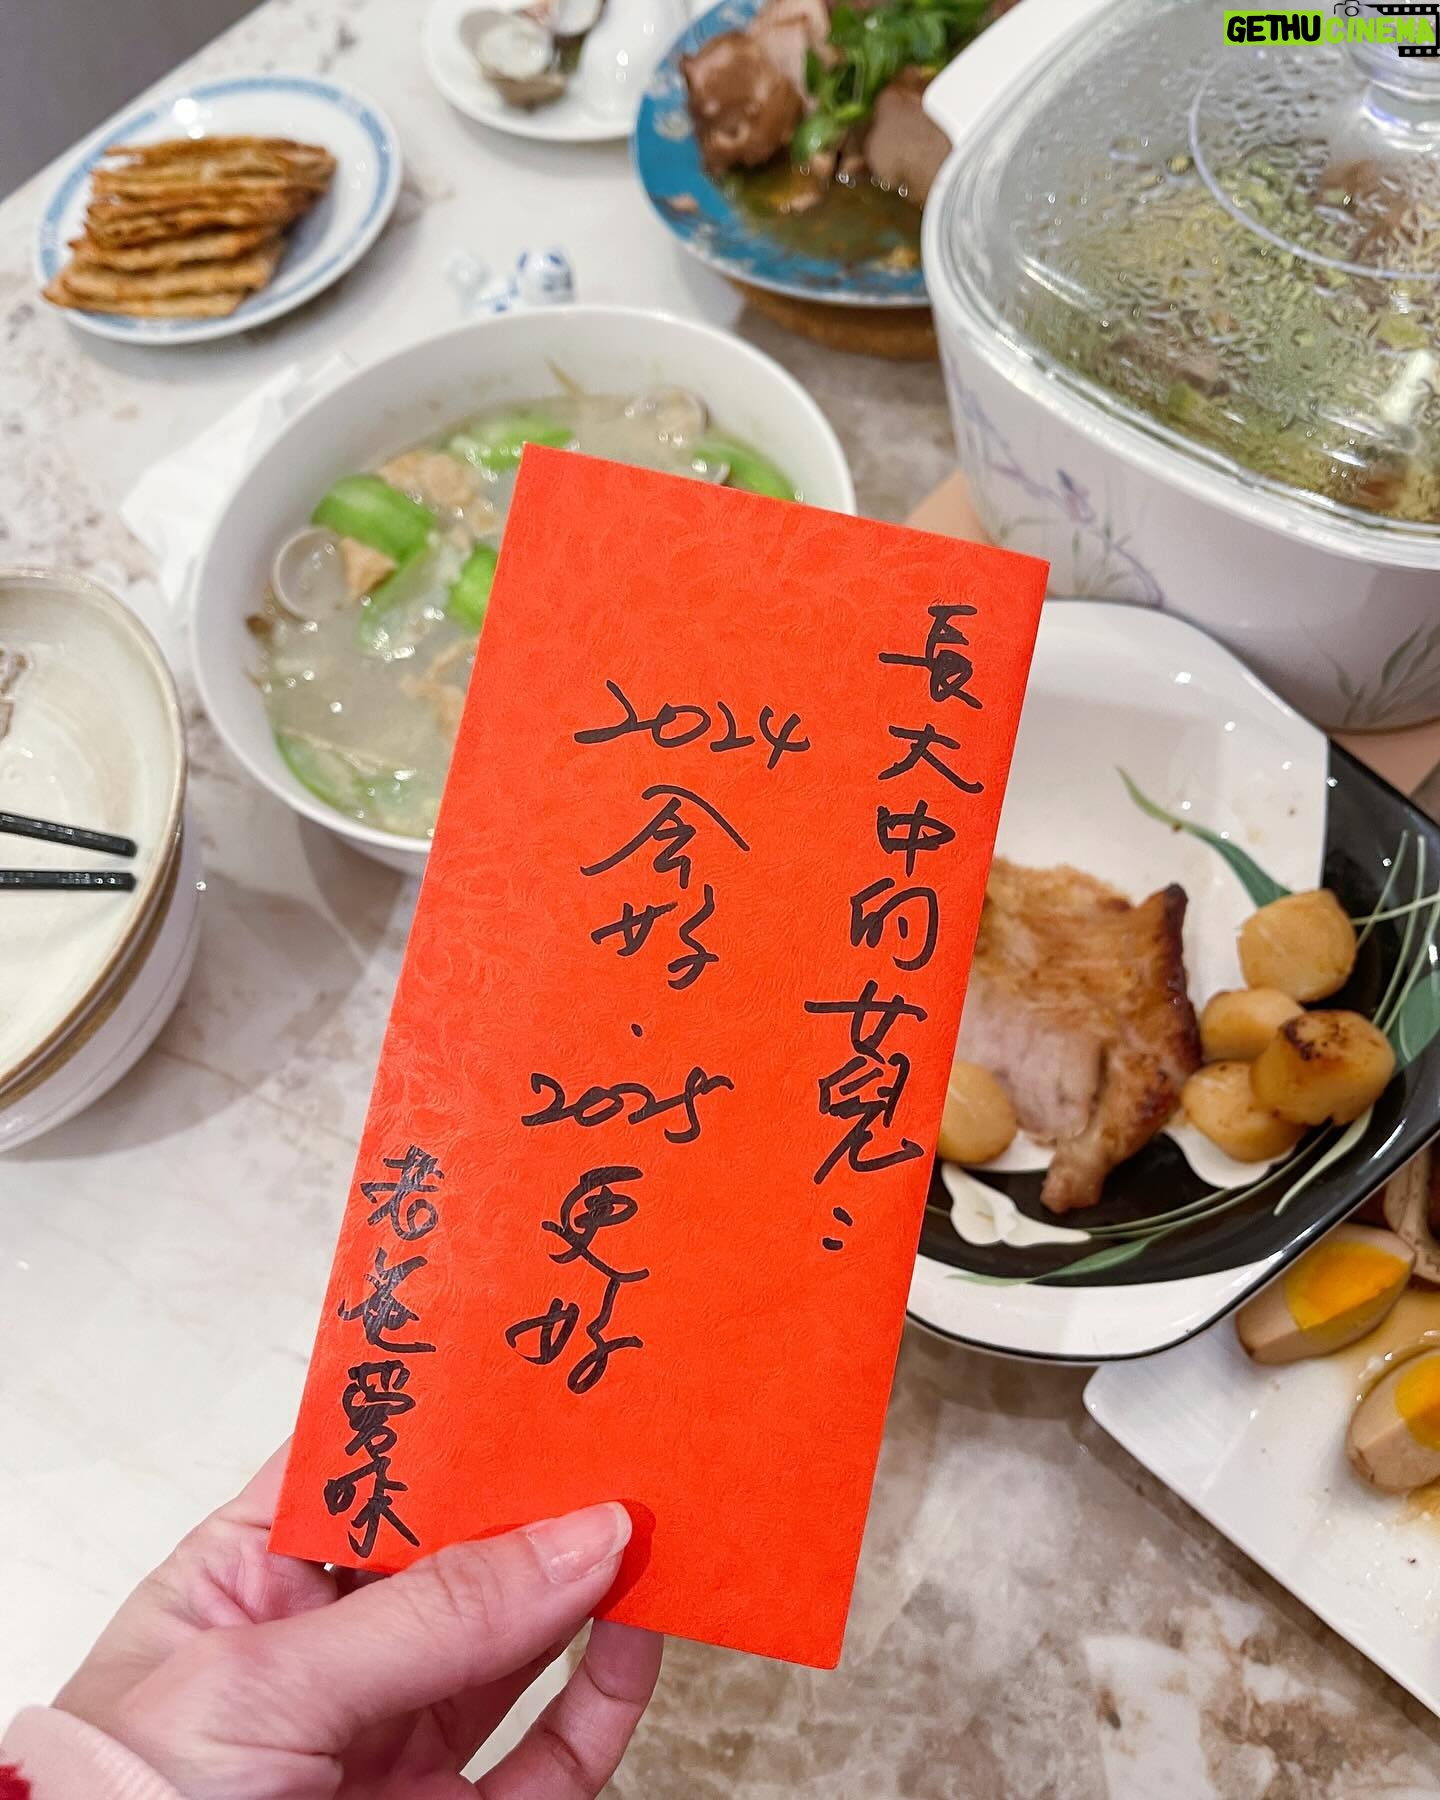 GETHU CINEMA
長大中的女兒：
2024會好．2025更好
老爸